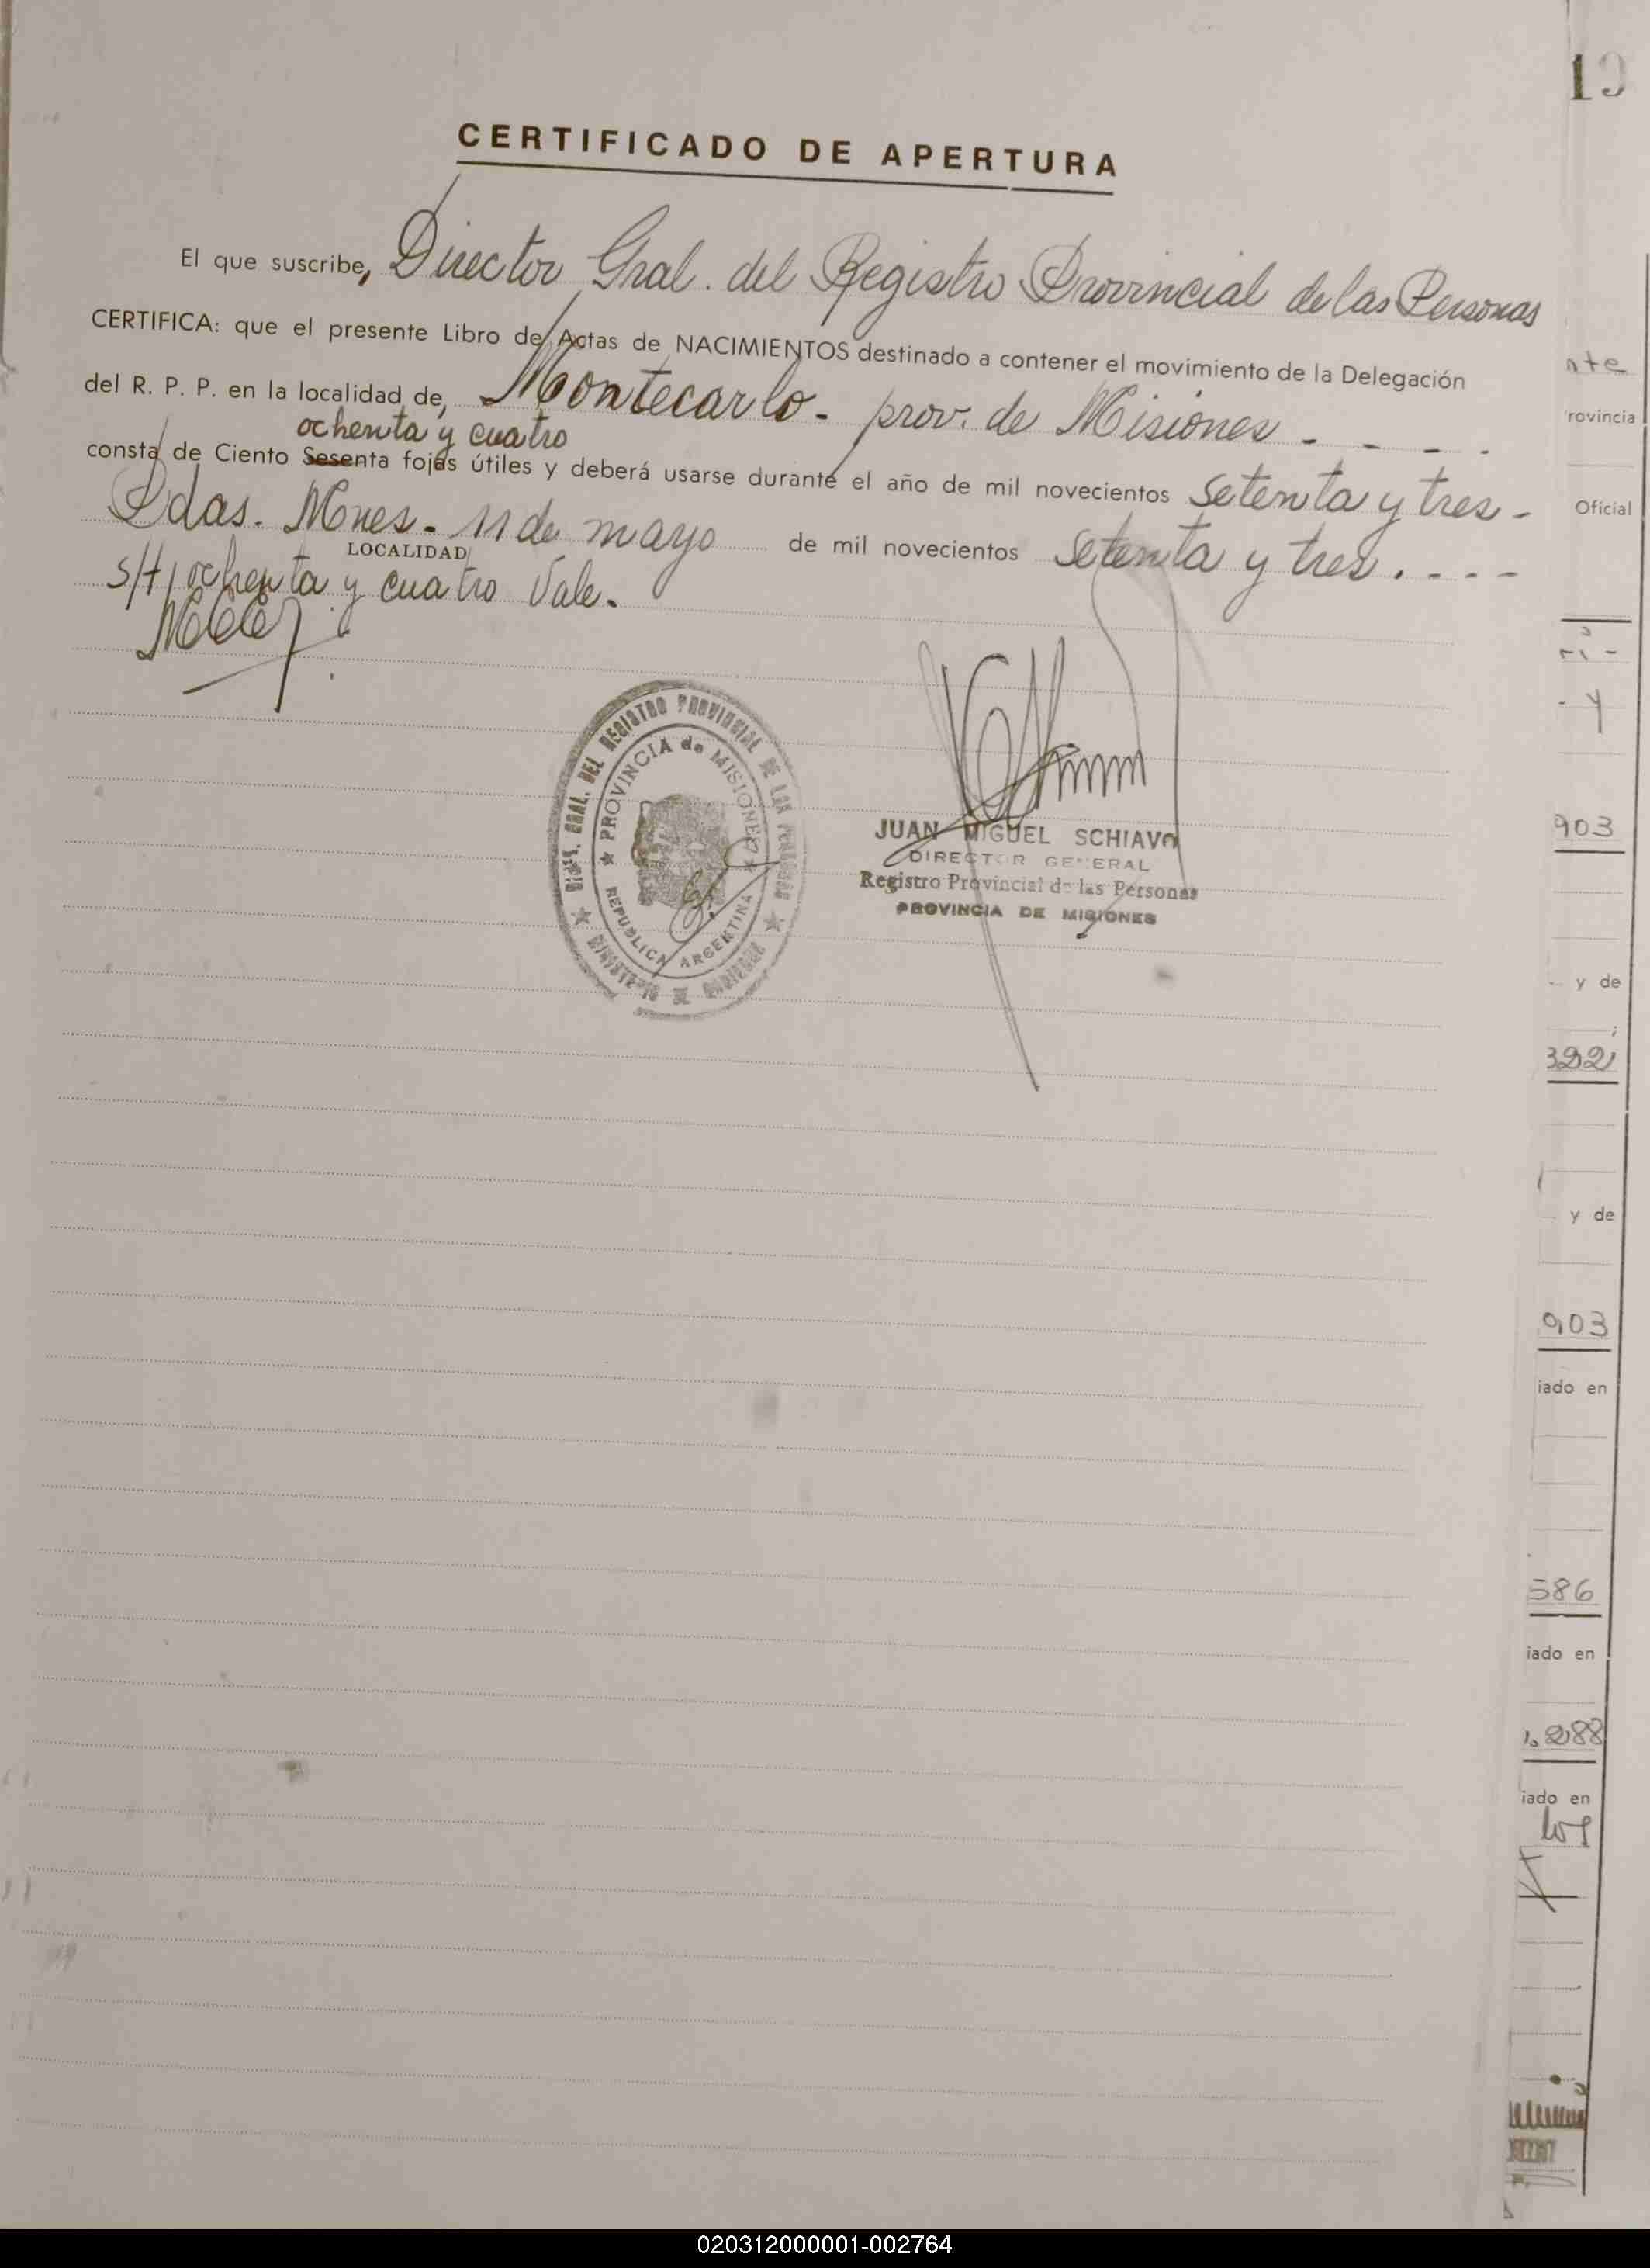 19
CERTIFICADO DE APERTURA
El que suscribe, Director Gral. del Registro Provincial de las Personas
CERTIFICA: que el presente Libro de Actas de NACIMIENTOS destinado a contener el movimiento de la Delegación
del R. P. P. en la localidad de, Montecarlo - prov. de Misiones - - - -
ochenta y cuatro
consta de Ciento Sesenta fojas útiles y deberá usarse durante el año de mil novecientos setenta y tres -
Pdas. Mnes - 11 de mayo de mil novecientos setenta y tres . - - -
LOCALIDAD
s/t, ochenta y cuatro Vale.
DIR. GRAL. DEL REGISTRO PROVINCIAL DE LAS PERSONAS
PROVINCIA de MISIONES
REPUBLICA ARGENTINA
MINISTERIO DE GOBIERNO
JUAN MIGUEL SCHIAVO
DIRECTOR GENERAL
Registro Provincial de las Personas
PROVINCIA DE MISIONES
nte
rovincia
Oficial
y
903
y de
322
y de
903
iado en
586
iado en
1.288
iado en
los
020312000001-002764